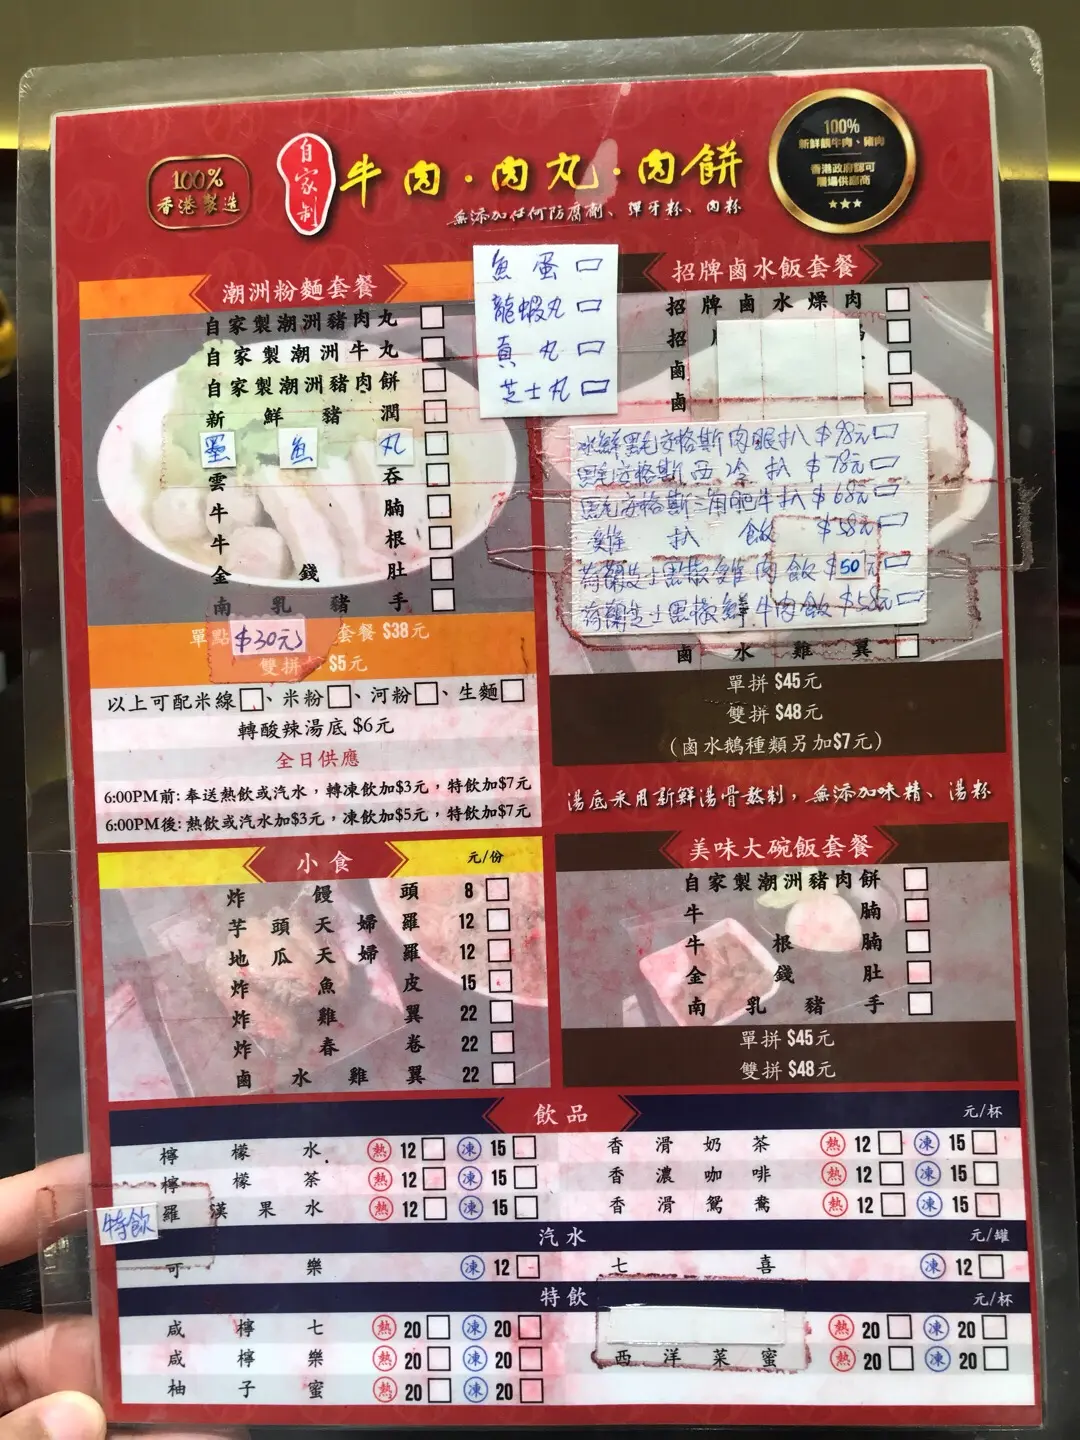 100%
香港製造
自家制
牛肉·肉丸·肉餅
無添加任何防腐劑、彈牙粉、肉粉
100%
新鮮靚牛肉、豬肉
香港政府認可
屠場供應商
潮洲粉麵套餐
自家製潮洲豬肉丸
自家製潮洲牛丸
自家製潮洲豬肉餅
新鮮豬潤
墨魚丸
雲吞
牛腩
牛根
金錢肚
南乳豬手
單點 $30元 套餐 $38元
雙拼 $5元
以上可配米線、米粉、河粉、生麵
轉酸辣湯底 $6元
全日供應
6:00PM前: 奉送熱飲或汽水，轉凍飲加$3元，特飲加$7元
6:00PM後: 熱飲或汽水加$3元，凍飲加$5元，特飲加$7元
魚蛋
龍蝦丸
貢丸
芝士丸
招牌鹵水飯套餐
招牌鹵水燥肉
招
鹵
鹵
冰鮮黑毛安格斯肉眼扒 $98元
黑毛安格斯西冷扒 $78元
黑毛安格斯三角肥牛扒 $68元
雞扒飯 $58元
荷蘭芝士黑椒雞肉飯 $50元
荷蘭芝士黑椒鮮牛肉飯 $58元
鹵水雞翼
單拼 $45元
雙拼 $48元
(鹵水鵝種類另加$7元)
湯底采用新鮮湯骨熬制，無添加味精、湯粉
小食 元/份
炸饅頭 8
芋頭天婦羅 12
地瓜天婦羅 12
炸魚皮 15
炸雞翼 22
炸春卷 22
鹵水雞翼 22
美味大碗飯套餐
自家製潮洲豬肉餅
牛腩
牛根腩
金錢肚
南乳豬手
單拼 $45元
雙拼 $48元
飲品 元/杯
檸檬水 熱 12 凍 15 香滑奶茶 熱 12 凍 15
檸檬茶 熱 12 凍 15 香濃咖啡 熱 12 凍 15
特飲 羅漢果水 熱 12 凍 15 香滑鴛鴦 熱 12 凍 15
汽水 元/罐
可樂 凍 12 七喜 凍 12
特飲 元/杯
咸檸七 熱 20 凍 20 熱 20 凍 20
咸檸樂 熱 20 凍 20 西洋菜蜜 熱 20 凍 20
柚子蜜 熱 20 凍 20